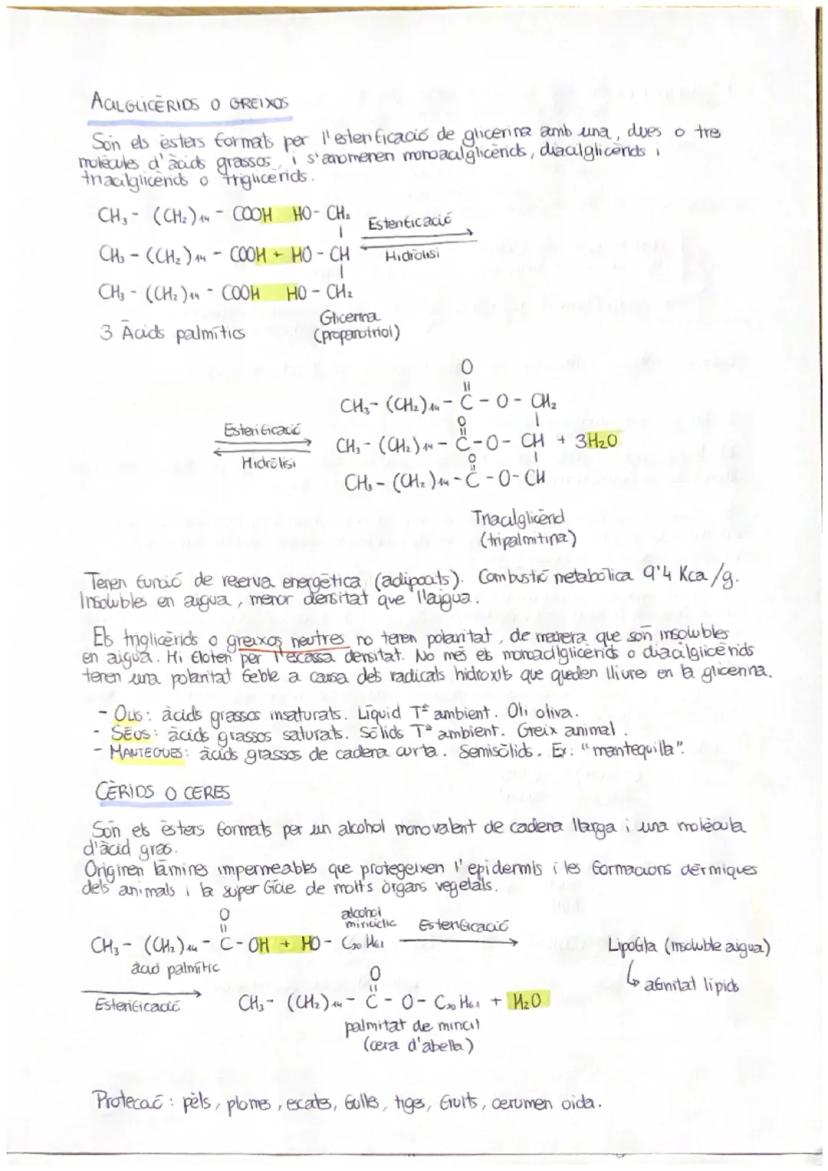 ACILGLICÈRIDS O GREIXOS
Són els èsters formats per l'esterificació de glicerina amb una, dues o tres
molècules d'àcids grassos, i s'anomenen monoacilglicèrids, diacilglicèrids i
triacilglicèrids o triglicèrids.
CH₃ - (CH₂)₁₄ - COOH HO - CH₂
Esterificació
CH₃ - (CH₂)₁₄ - COOH + HO - CH
Hidròlisi
CH₃ - (CH₂)₁₄ - COOH HO - CH₂
3 Àcids palmítics
Glicerina
(propanotriol)
O
CH₃ - (CH₂)₁₄ - C - O - CH₂
Esterificació
O
CH₃ - (CH₂)₁₄ - C - O - CH + 3H₂O
Hidròlisi
O
CH₃ - (CH₂)₁₄ - C - O - CH
Triacilglicèrid
(tripalmitina)
Tenen funció de reserva energètica (adipòcits). Combustió metabòlica 9'4 Kca/g.
Insolubles en aigua, menor densitat que l'aigua.
Els triglicèrids o greixos neutres no tenen polaritat, de manera que són insolubles
en aigua. Hi floten per l'escassa densitat. No més els monoacilglicèrids o diacilglicèrids
tenen una polaritat feble a causa dels radicals hidroxils que queden lliures en la glicerina.
- OLIS: àcids grassos insaturats. Líquid Tª ambient. Oli oliva.
- SÈUS: àcids grassos saturats. Sòlids Tª ambient. Greix animal.
- MANTEGUES: àcids grassos de cadena curta. Semisòlids. Ex: "mantequilla".
CÈRIDS O CERES
Són els èsters formats per un alcohol monovalent de cadena llarga i una molècula
d'àcid gras.
Originen làmines impermeables que protegeixen l'epidermis i les formacions dèrmiques
dels animals i la superfície de molts òrgans vegetals.
O
alcohol
miricílic
Esterificació
CH₃ - (CH₂)₁₄ - C - OH + HO - C₃₀H₆₁
Lipòfila (insoluble aigua)
àcid palmític
afinitat lípids
Esterificació
O
CH₃ - (CH₂)₁₄ - C - O - C₃₀H₆₁ + H₂O
palmitat de miricil
(cera d'abella)
Protecció: pèls, plomes, escates, fulles, tiges, fruits, cerumen oïda.